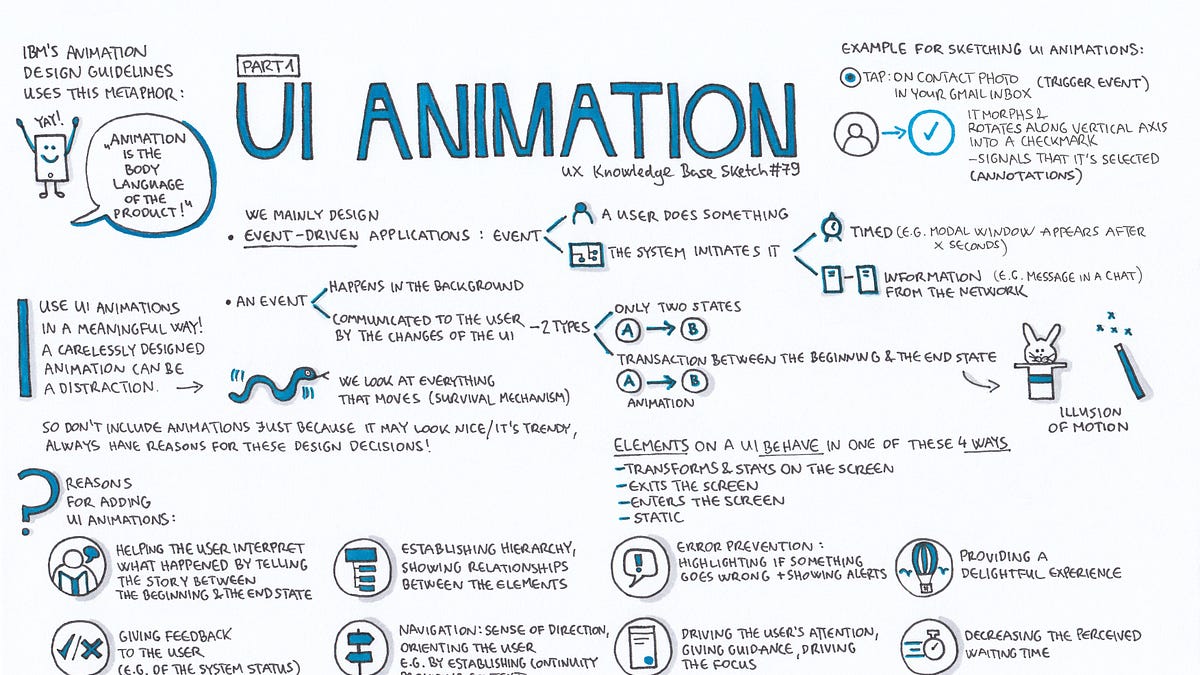 IBM'S ANIMATION
DESIGN GUIDELINES
USES THIS METAPHOR:
YAY!
„ANIMATION
IS THE
BODY
LANGUAGE
OF THE
PRODUCT!"
PART 1
UI ANIMATION
UX Knowledge Base Sketch #79
EXAMPLE FOR SKETCHING UI ANIMATIONS:
TAP: ON CONTACT PHOTO (TRIGGER EVENT)
IN YOUR GMAIL INBOX
IT MORPHS &
ROTATES ALONG VERTICAL AXIS
INTO A CHECKMARK
-SIGNALS THAT IT'S SELECTED
(ANNOTATIONS)
WE MAINLY DESIGN
• EVENT-DRIVEN APPLICATIONS: EVENT
A USER DOES SOMETHING
THE SYSTEM INITIATES IT
TIMED (E.G. MODAL WINDOW APPEARS AFTER
X SECONDS)
INFORMATION (E.G. MESSAGE IN A CHAT)
FROM THE NETWORK
• AN EVENT
HAPPENS IN THE BACKGROUND
COMMUNICATED TO THE USER
BY THE CHANGES OF THE UI
-2 TYPES
ONLY TWO STATES
A → B
TRANSACTION BETWEEN THE BEGINNING & THE END STATE
A → B
ANIMATION
ILLUSION
OF MOTION
USE UI ANIMATIONS
IN A MEANINGFUL WAY!
A CARELESSLY DESIGNED
ANIMATION CAN BE
A DISTRACTION. →
WE LOOK AT EVERYTHING
THAT MOVES (SURVIVAL MECHANISM)
SO DON'T INCLUDE ANIMATIONS JUST BECAUSE IT MAY LOOK NICE/IT'S TRENDY,
ALWAYS HAVE REASONS FOR THESE DESIGN DECISIONS!
ELEMENTS ON A UI BEHAVE IN ONE OF THESE 4 WAYS
-TRANSFORMS & STAYS ON THE SCREEN
-EXITS THE SCREEN
-ENTERS THE SCREEN
- STATIC
? REASONS
FOR ADDING
UI ANIMATIONS:
HELPING THE USER INTERPRET
WHAT HAPPENED BY TELLING
THE STORY BETWEEN
THE BEGINNING & THE END STATE
ESTABLISHING HIERARCHY,
SHOWING RELATIONSHIPS
BETWEEN THE ELEMENTS
ERROR PREVENTION:
HIGHLIGHTING IF SOMETHING
GOES WRONG + SHOWING ALERTS
PROVIDING A
DELIGHTFUL EXPERIENCE
GIVING FEEDBACK
TO THE USER
(E.G. OF THE SYSTEM STATUS)
NAVIGATION: SENSE OF DIRECTION,
ORIENTING THE USER
E.G. BY ESTABLISHING CONTINUITY
DRIVING THE USER'S ATTENTION,
GIVING GUIDANCE, DRIVING
THE FOCUS
DECREASING THE PERCEIVED
WAITING TIME